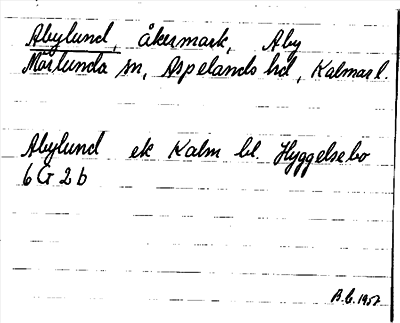 Abylund, åkermark, Aby
Mörlunda sn, Aspelands hd, Kalmar l.
Abylund ek Kalm bl. Hyggelsebo
6G2b
B.G. 1957